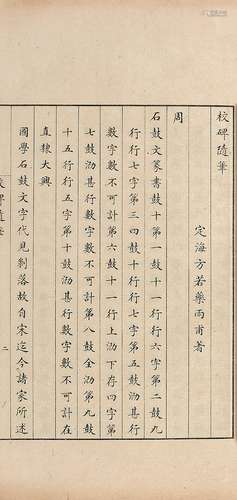 校碑隨筆
定海方若藥雨甫著
周
石鼓文篆書鼓十第一鼓十一行行六字第二鼓九
行行七字第三四鼓十行行七字第五鼓泐甚行
數字數不可計第六鼓十一行上泐下存四字第
七鼓泐甚行數字數不可計第八鼓全泐第九鼓
十五行行五字第十鼓泐甚行數字數不可計在
直隸大興
國學石鼓文字代見剝落故自宋迄今諸家所述
校碑隨筆
二